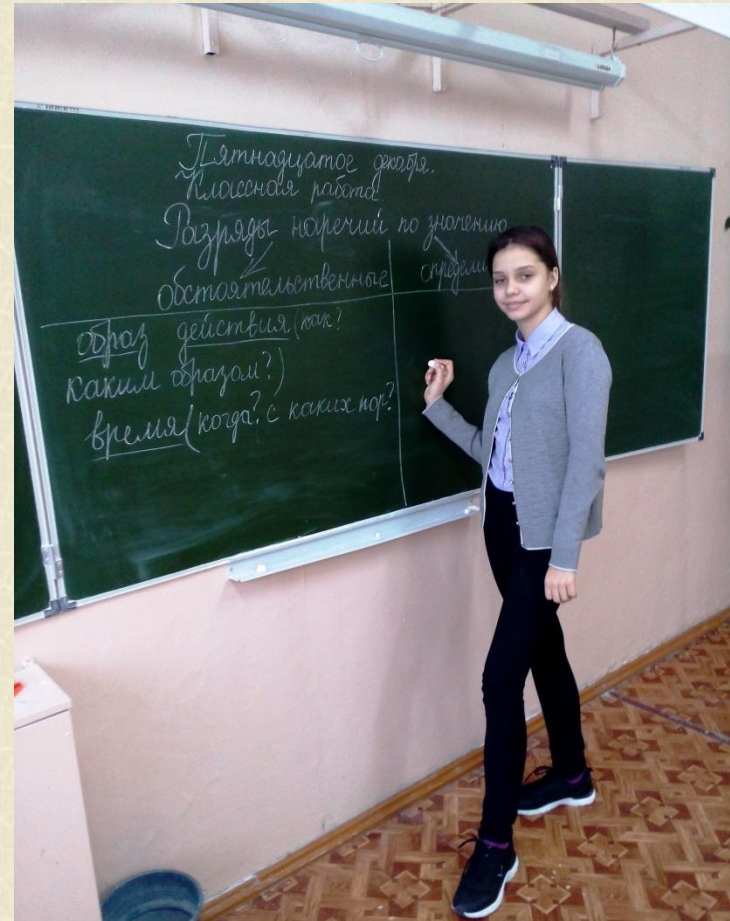 Пятнадцатое декабря.
Классная работа
Разряды наречий по значению
обстоятельственные определи
образ действия (как?
каким образом?)
время (когда? с каких пор?